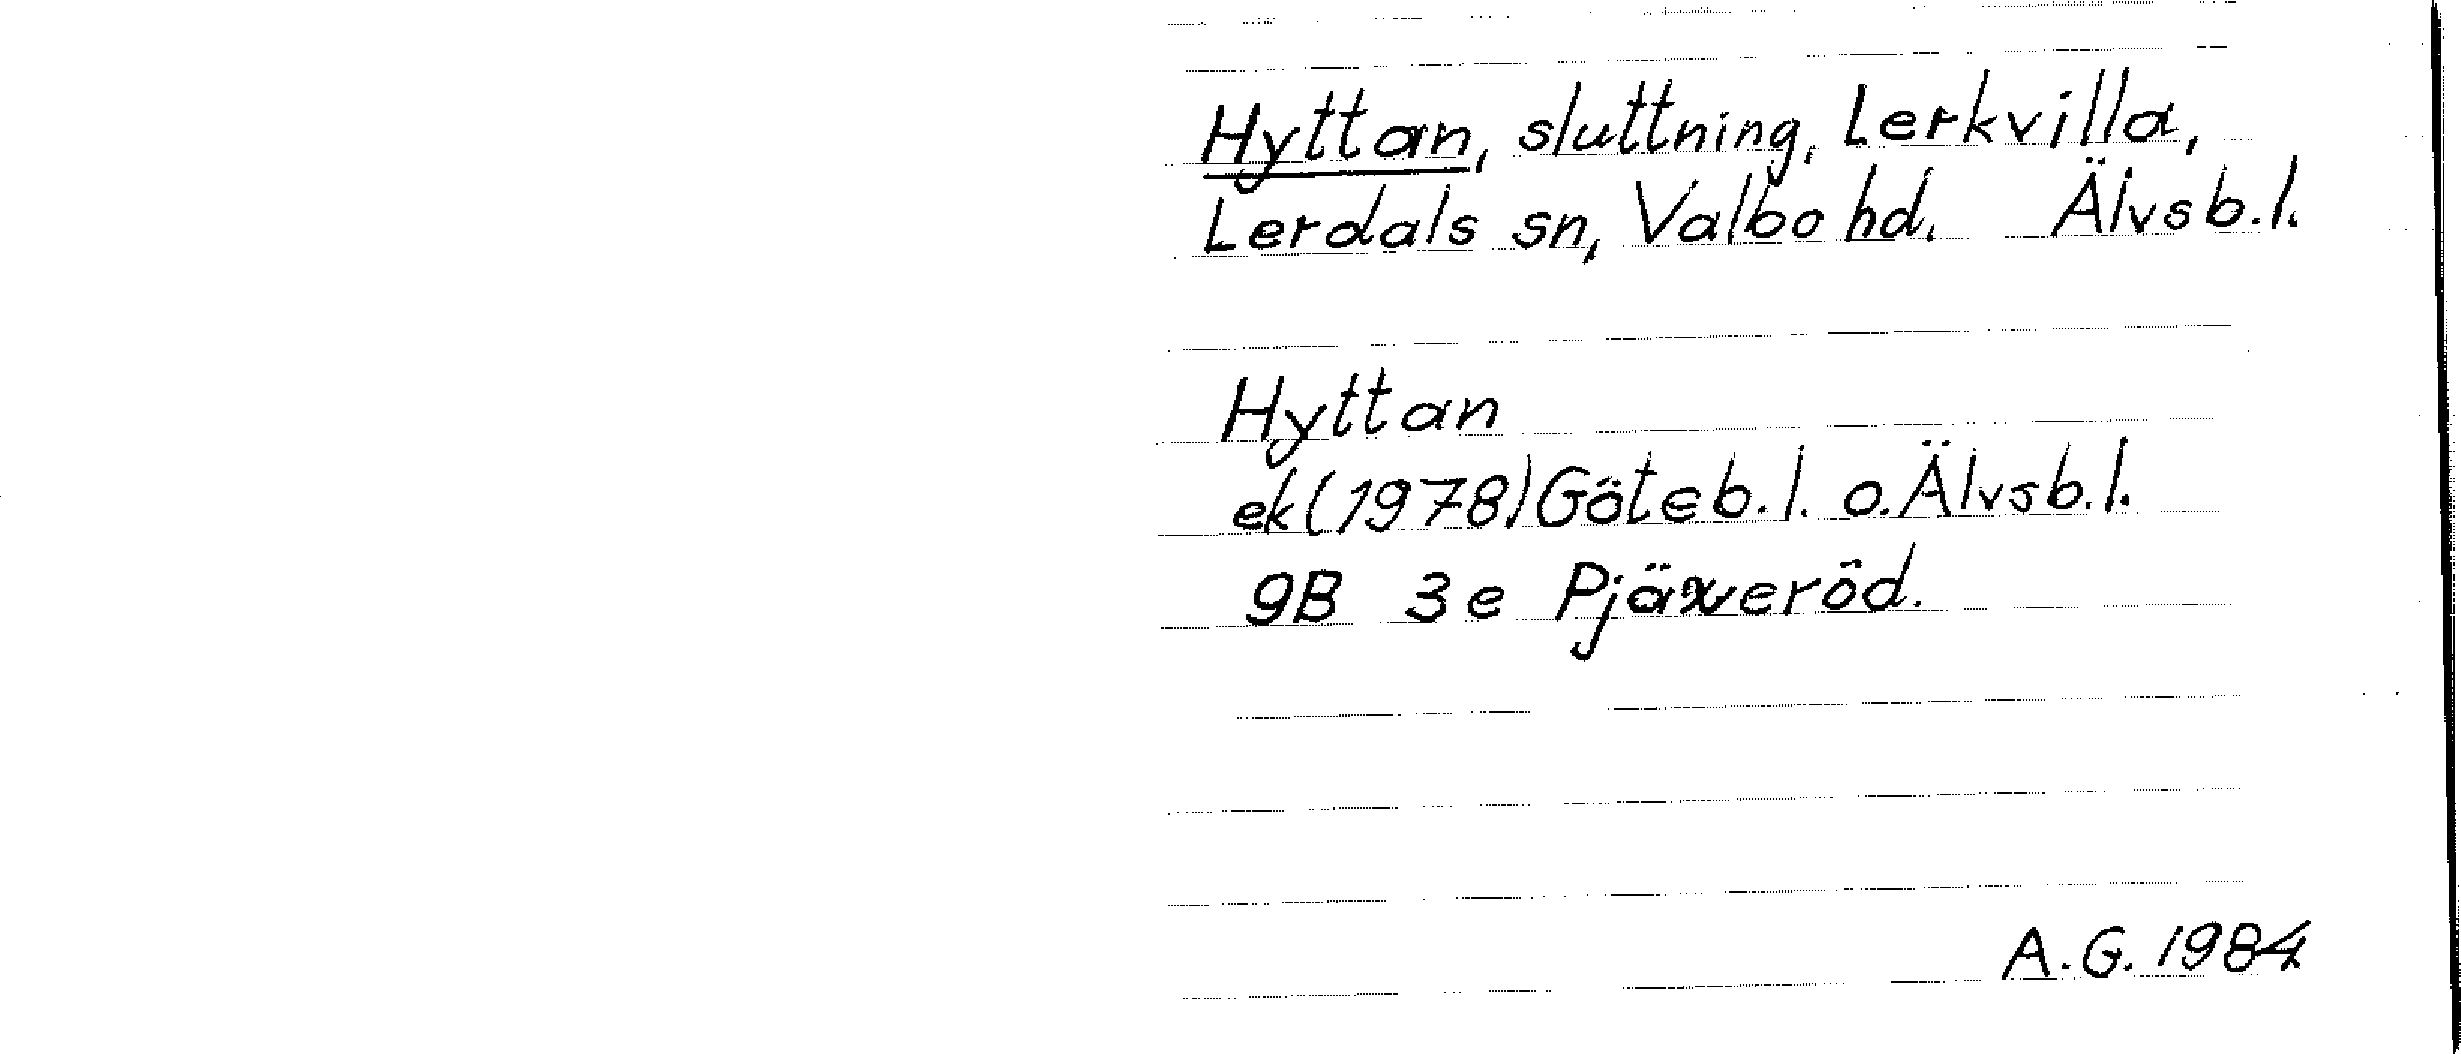 Hyttan, sluttning, Lerkvilla,
Lerdals sn, Valbo hd. Älvsb.l.
Hyttan
ek(1978)Göteb.l. o.Älvsb.l.
9B 3e Pjäxeröd.
A.G. 1984